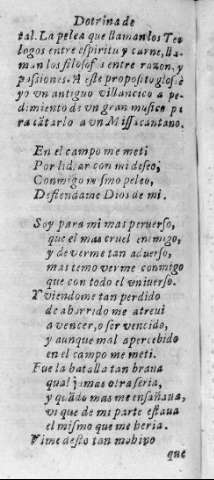 Dotrina de
tal. La pelea que llaman los Teo
logos entre espiritu y carne, lla-
man los filosofos entre razon, y
passiones. A este proposito glosè
yo un antiguo villancico a pe-
dimiento de un gran musico pa
ra cātarlo a un Missacantano.
En el campo me meti
Por lidiar con mi deseo,
Conmigo mismo peleo,
Defiendame Dios de mi.
Soy para mi mas peruerso,
que el mas cruel enemigo,
y de verme tan aduerso,
mas temo verme conmigo
que con todo el vniuerso.
Y viendome tan perdido
de aburrido me atreui
a vencer, o ser vencido,
y aunque mal apercebido
en el campo me meti.
Fue la batalla tan braua
qual jamas otra seria,
y quādo mas me ensañaua,
vi que de mi parte estaua
el mismo que me heria.
Vime desto tan mohino
que